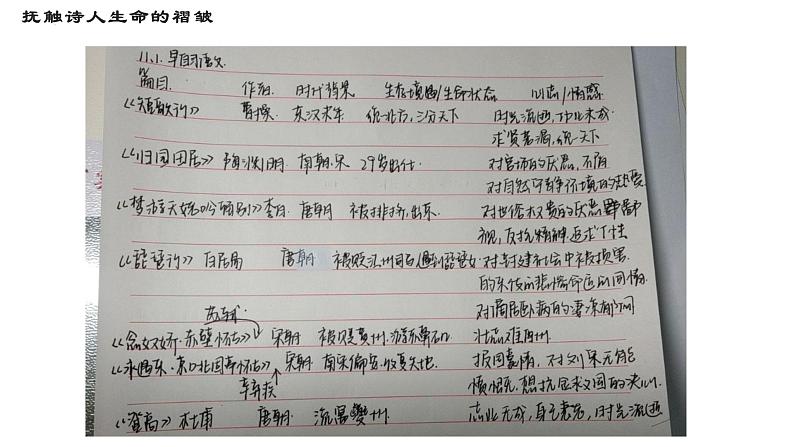 抚触诗人生命的褶皱
11.1. 早自习语文.
篇目. 作者. 时代背景 生存境遇/生命状态 心志/情感
《短歌行》 曹操. 东汉末年 统北方,三分天下 时光流逝,功业未成.
求贤若渴,统一天下
《归园田居》陶渊明. 南朝.宋 29岁出仕 对官场的厌恶,不屑
对自然宁静环境的热爱
《梦游天姥吟留别》李白. 唐朝 被排挤,出京. 对世俗权贵的厌恶
视,反抗精神,追求个性
《琵琶行》 白居易 唐朝 被贬江州司马 遇到琵琶女 对封建社会中被损害
的女伎的悲惨命运的同情
对谪居卧病的凄凉郁闷
苏轼
《念奴娇·赤壁怀古》 宋朝 被贬黄州,游赤壁 壮志难酬.
《永遇乐·京口北固亭怀古》 宋朝 南宋偏安,收复失地. 报国豪情,对刘宋元
辛弃疾 愤恨.想抗金救国的决心.
《登高》杜甫 唐朝 流寓夔州. 志业无成,身老衰老,时光流逝